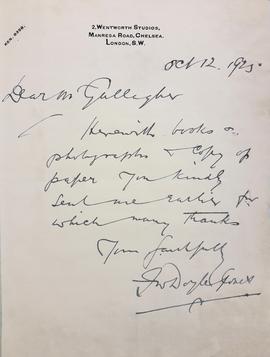 2, Wentworth Studios,
Manresa Road, Chelsea.
London, S.W.
Oct 12. 1925.
Dear Mr Gallagher
Herewith books &
photographs & copy of
paper you kindly
sent me earlier for
which many thanks
Yours faithfully
Doyle Jones